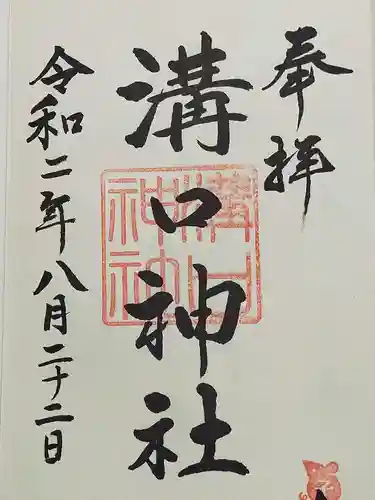 奉拝
溝口神社
溝口神社
令和二年八月二十二日